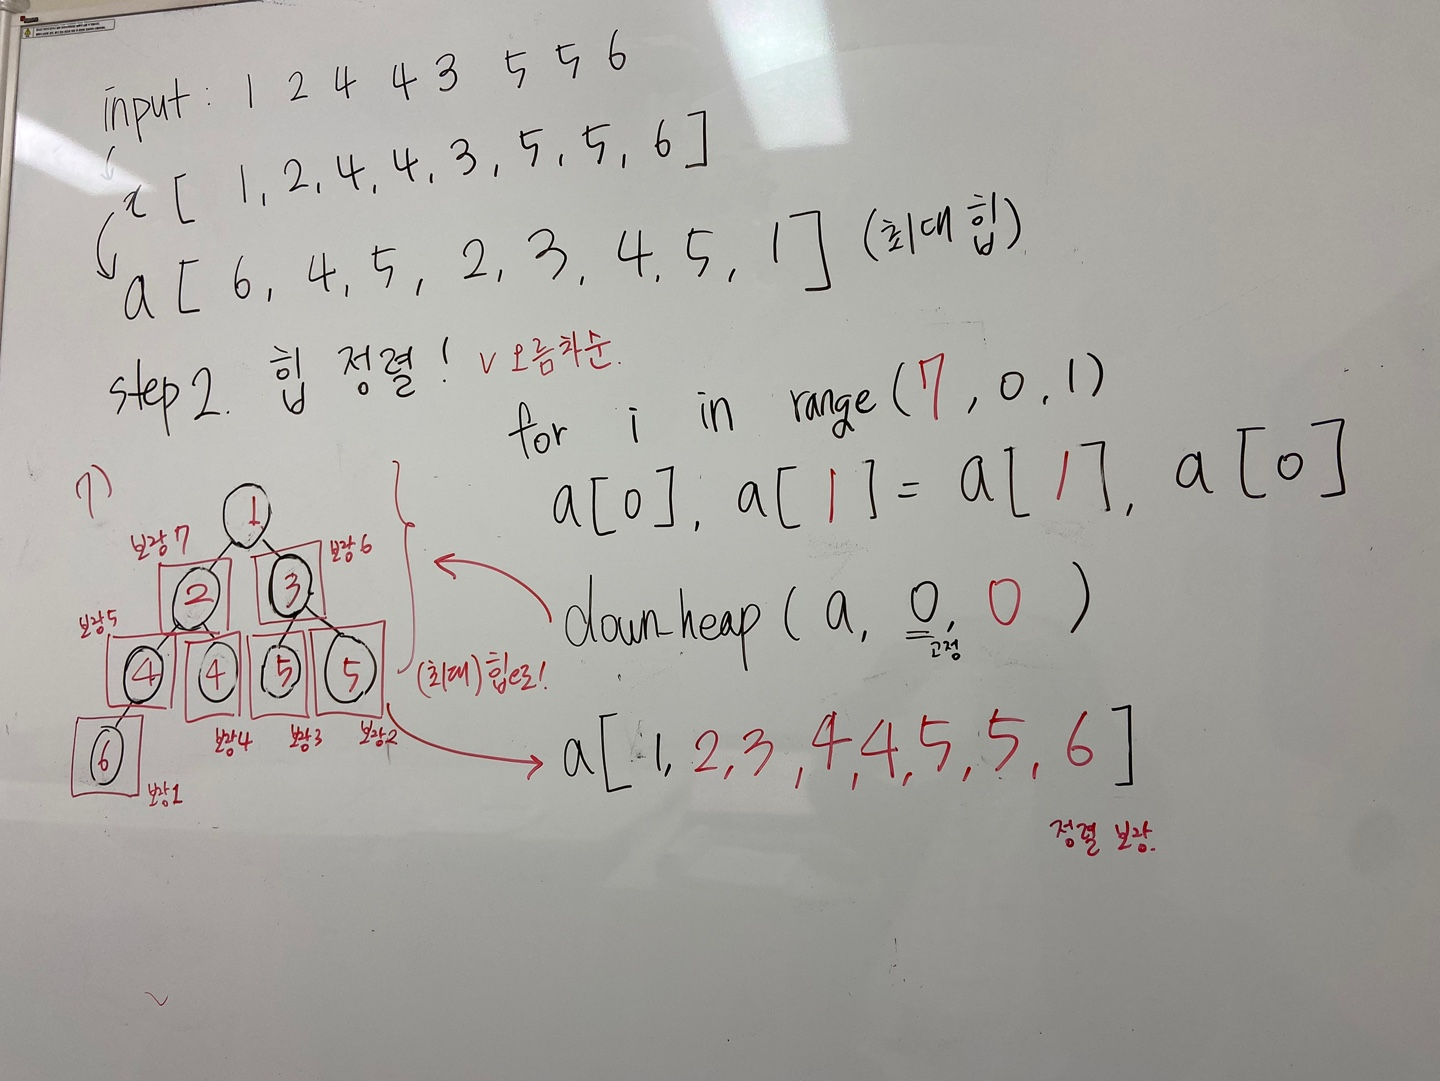 input : 1 2 4 4 3 5 5 6
x [ 1, 2, 4, 4, 3, 5, 5, 6 ]
a [ 6, 4, 5, 2, 3, 4, 5, 1 ] (최대 힙)
step 2. 힙 정렬! v 오름차순.
for i in range ( 7, 0, 1 )
a [0], a [ 1 ] = a [ 1 ], a [0]
down_heap ( a, 0, 0 )
고정
7)
1
보장7
보장6
2 3
보장5
4 4 5 5
(최대) 힙으로!
보장4 보장3 보장2
6
보장1
a [ 1, 2, 3, 4, 4, 5, 5, 6 ]
정렬 보장.